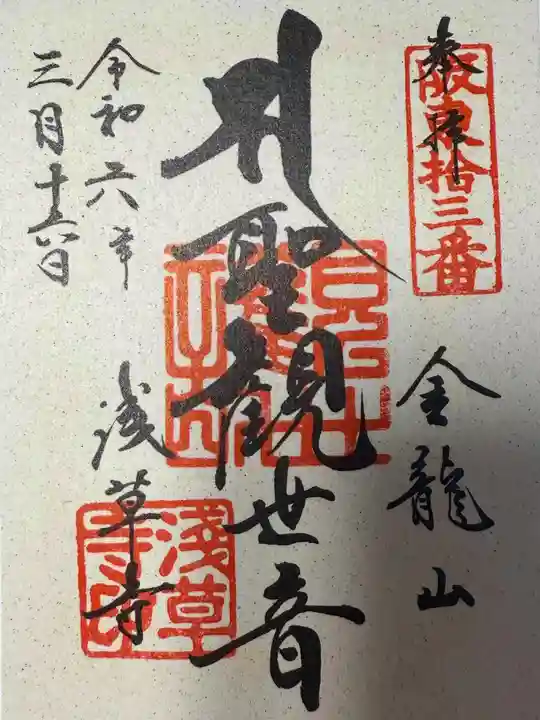 奉拝
坂東拾三番
金龍山
聖観世音
浅草寺
淺草寺印
令和六年
三月十六日